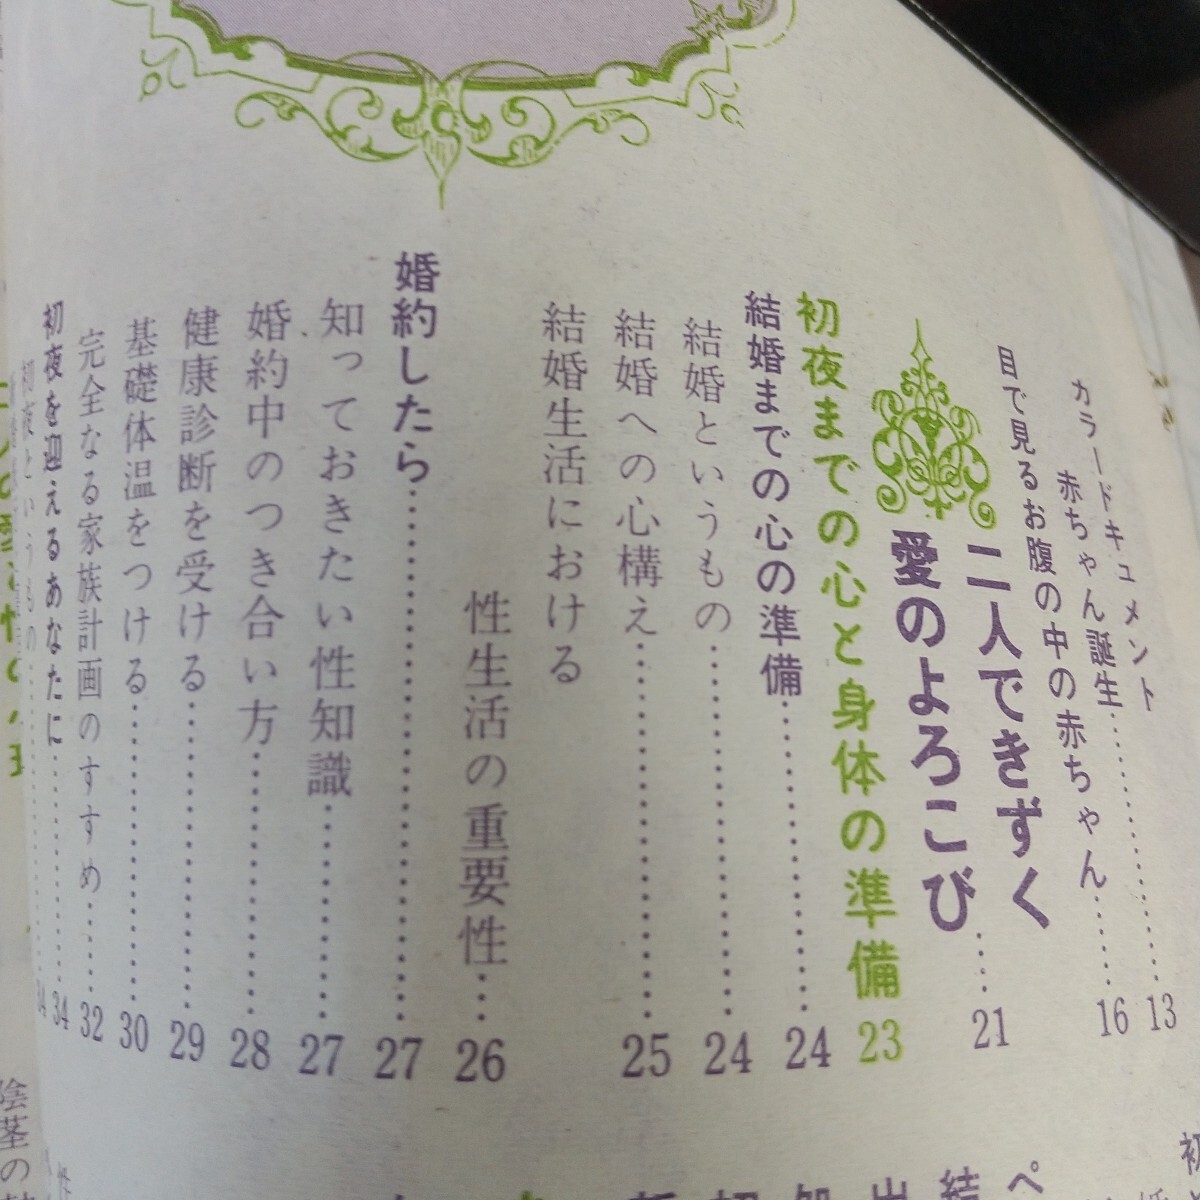 カラードキュメント
赤ちゃん誕生…………13
目で見るお腹の中の赤ちゃん……16
二人できずく
愛のよろこび……21
初夜までの心と身体の準備 23
結婚までの心の準備…………24
結婚というもの…………24
結婚への心構え…………25
結婚生活における
性生活の重要性…26
婚約したら…………27
知っておきたい性知識…………27
婚約中のつき合い方…………28
健康診断を受ける…………29
基礎体温をつける…………30
完全なる家族計画のすすめ……32
初夜を迎えるあなたに…………34
初夜というもの…………34
陰茎の